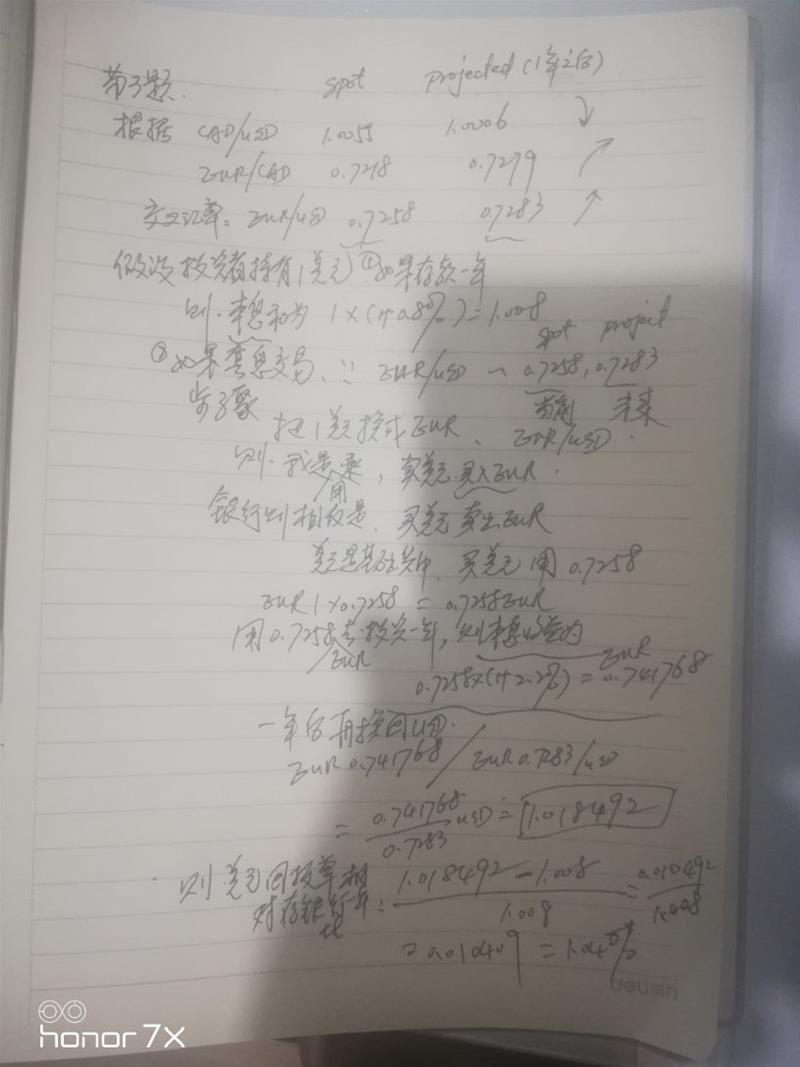 第3题. spot projected (1年之后)
根据 CAD/USD 1.0055 1.0006
EUR/CAD 0.7218 0.7279
交叉汇率: EUR/USD 0.7258 0.7283
假设投资者持有1美元 ①如果存款一年
则.本息和为 1×(1+0.8%)=1.008
spot project
②如果套息交易、∵ EUR/USD ~ 0.7258, 0.7283
步骤 当前 未来
把1美元换成EUR、 EUR/USD.
则.我是乘, 卖美元.买入EUR.
用
银行则相反是、买美元 卖出EUR
美元是基础货币、买美元 用 0.7258
EUR 1×0.7258 = 0.7258EUR
用0.7258去投资一年, 则本息收益为
EUR
0.7258×(1+2.2%) = 0.741768 EUR
一年后再换回USD.
EUR 0.741768 / EUR 0.7283/USD
= 0.741768/0.7283 USD = 1.018492
则美元回报率相 1.018492 - 1.008 = 0.010492
对存银行一年比: 1.008 1.008
= 0.010409 = 1.04%
deli
honor 7X